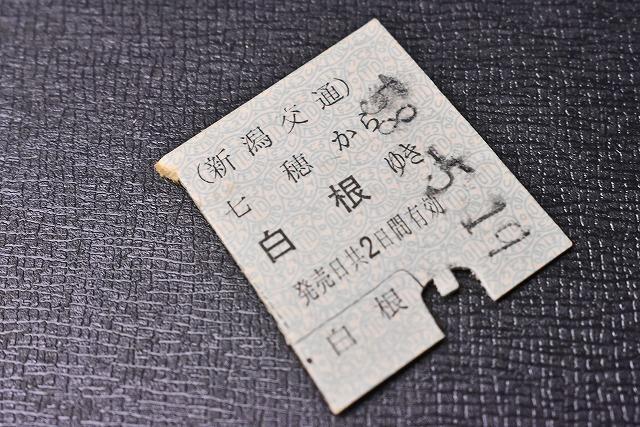 (新潟交通)
七穂から
白根ゆき
発売日共2日間有効
白根